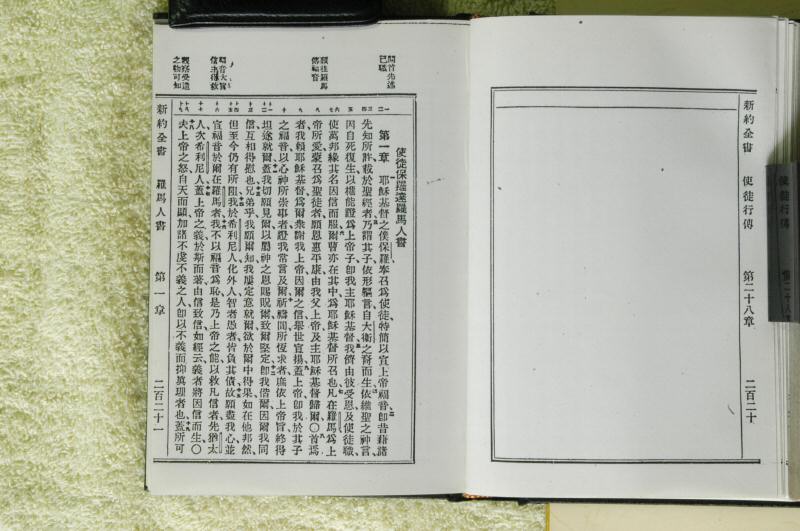 新約全書　使徒行傳　第二十八章　二百二十
使徒行傳
使徒保羅達羅馬人書
第一章　耶穌基督之僕保羅奉召爲使徒特簡以宣上帝福音卽昔藉諸
先知所許載於聖經者乃謂其子依形軀言自大衛之裔而生依維聖之神言
因自死復生以權能證爲上帝子卽我主耶穌基督我儕由彼受恩及使徒職
使萬邦緣其名因信而服爾曹亦在其中爲耶穌基督所召也凡在羅馬爲上
帝所愛蒙召爲聖徒者願恩惠平康由我父上帝及主耶穌基督歸爾〇首爲
者我賴耶穌基督爲爾衆謝我上帝因爾之信舉世宣揚蓋上帝卽我於其子
之福音以心神所崇事者證我常言及爾祈禱間所恆求者庶依上帝旨終得
坦途就爾蓋我切願見爾以屬神之恩賜貺爾致爾堅定卽我偕爾因爾我同
信互相得慰也兄弟乎我願爾知我屢定意就爾欲於爾中得果如在他邦然
但至今仍有所阻我於希利尼人化外人智者愚者皆負其債故願盡我心並
宣福音於爾在羅馬者我不以福音爲恥是乃上帝之能以救凡信者先猶太
人次希利尼人蓋上帝之義於斯而著由信致信如經云義者將因信而生〇
夫上帝之怒自天而顯加諸不虔不義之人卽以不義而抑眞理者也蓋所可
新約全書　羅馬人書　第一章　二百二十一